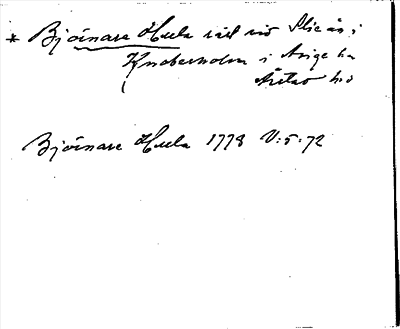 * Björnare Hula väst vid Slieån i
Knobesholm i Årige ha
Årstad hd
Björnare Hula 1778 V:5:72